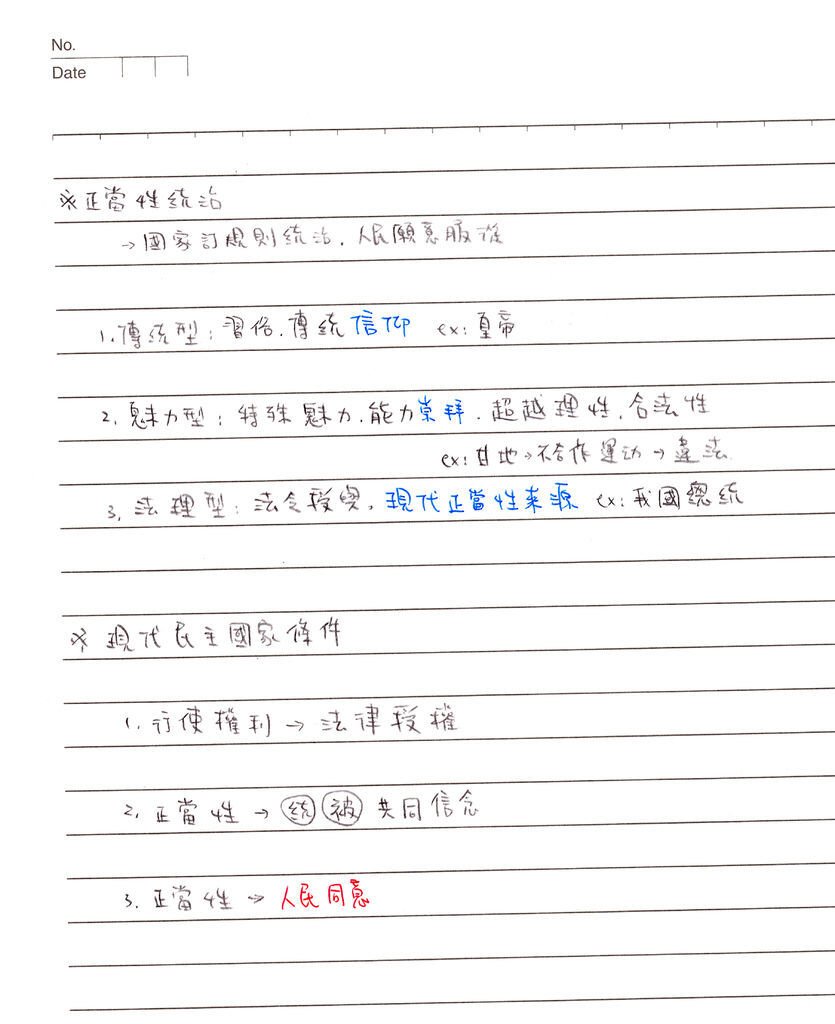 No.
Date
※正當性統治
→國家訂規則統治，人民願意服從
1.傳統型：習俗．傳統信仰 ex：皇帝
2.魅力型：特殊魅力．能力崇拜．超越理性．合法性
ex：甘地→不合作運动→違法
3.法理型：法令授與，現代正當性來源 ex：我國總統
※現代民主國家條件
1.行使權利→法律授權
2.正當性→統 被 共同信念
3.正當性→人民同意